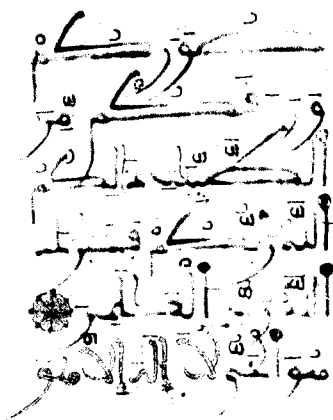 صوركم
ورزقكم من
الطيبت ذلكم
الله ربكم فتبرك
الله رب العلمين
هو الحي لا اله الا هو